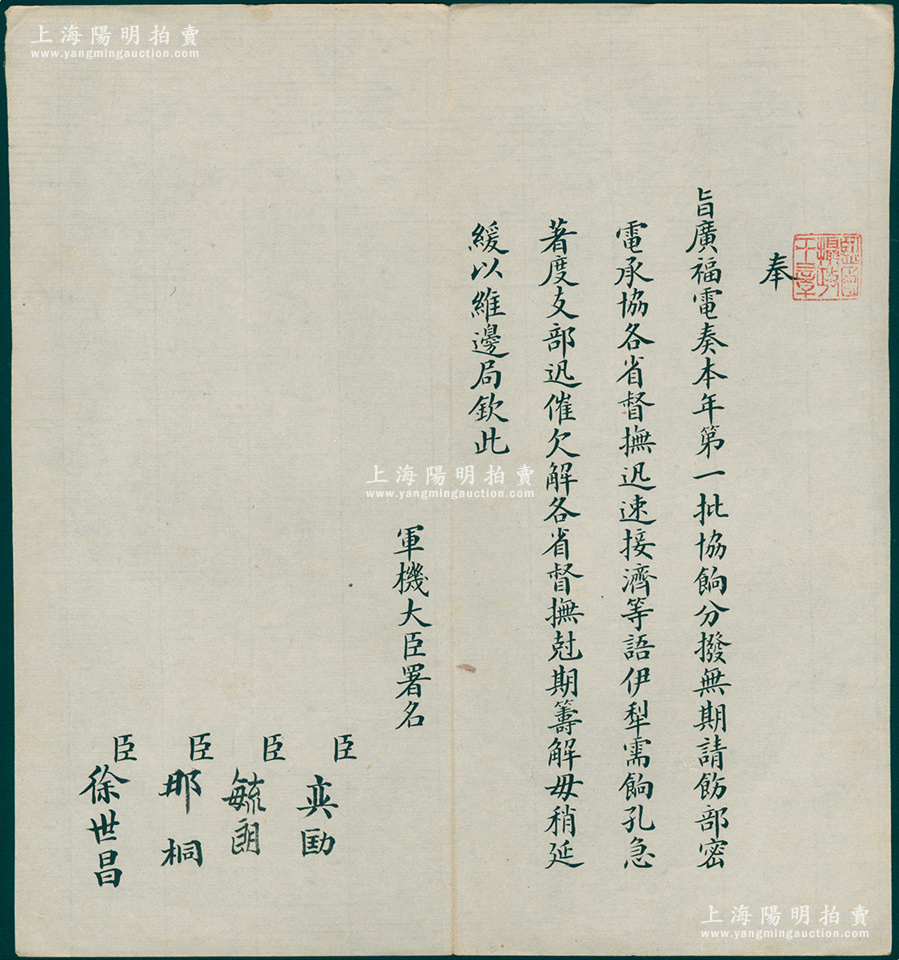 上海陽明拍賣
www.yangmingauction.com
監國攝政王章
奉
旨廣福電奏本年第一批協餉分撥無期請飭部密
電承協各省督撫迅速接濟等語伊犁需餉孔急
著度支部迅催欠解各省督撫尅期籌解毋稍延
緩以維邊局欽此
軍機大臣署名
臣奕劻
臣毓朗
臣那桐
臣徐世昌
上海陽明拍賣
www.yangmingauction.com
上海陽明拍賣
www.yangmingauction.com